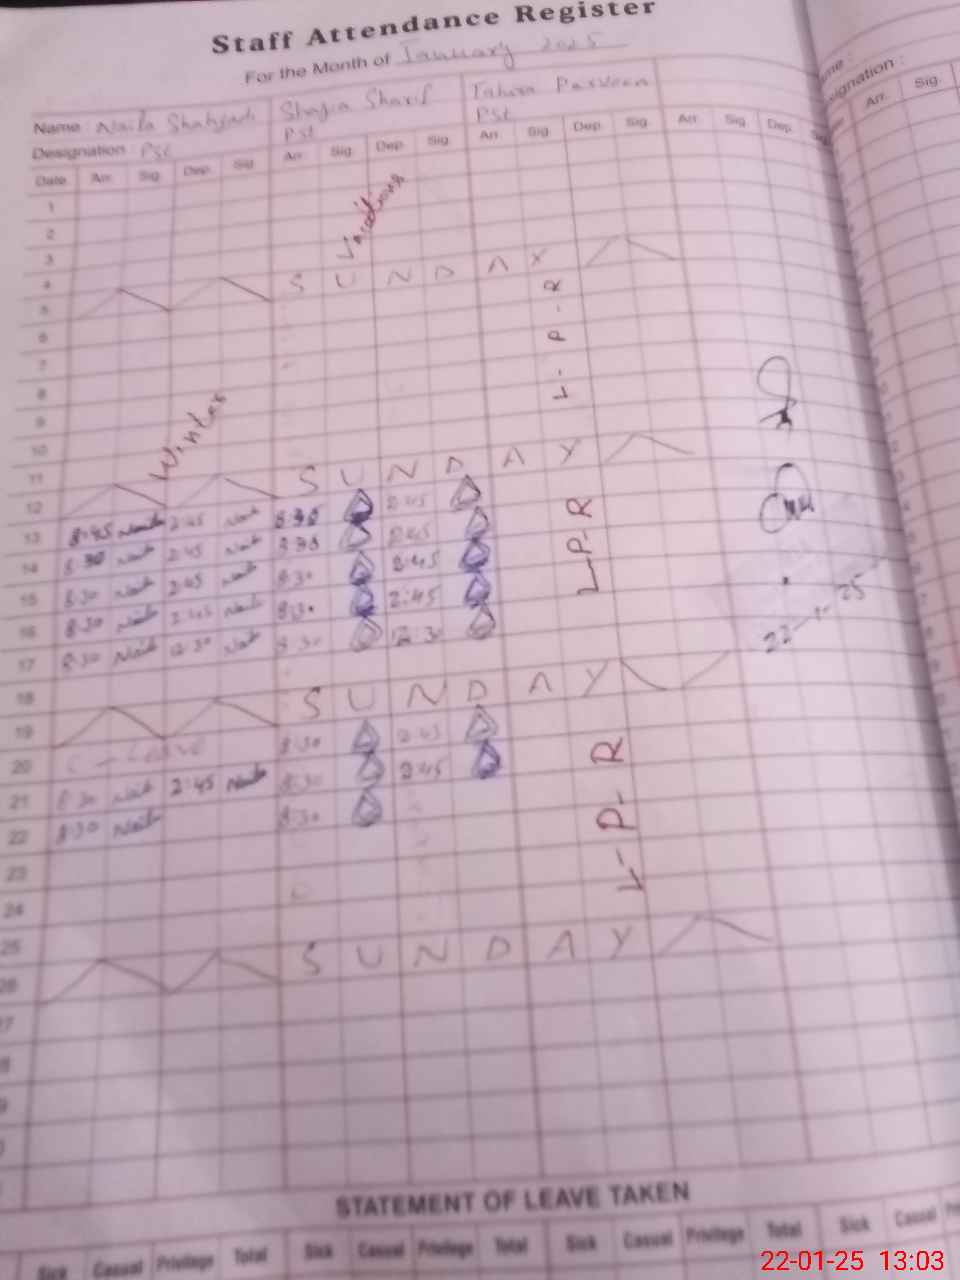 Staff Attendance Register
For the Month of January 2025
Name : Naila Shahzadi Shazia Sharif Tahira Parveen
Designation : Pst Pst Pst
Date Arr. Sig. Dep. Sig. Arr. Sig. Dep. Sig. Arr. Sig. Dep. Sig. Arr. Sig. Dep.
1
2
3
4 S U N D A Y
5
6
7
8
9
10
11 S U N D A Y
12
13 8:45 Naila 2:45 Naila 8:30 2:45
14 8:30 Naila 2:45 Naila 8:30 2:45
15 8:30 Naila 2:45 Naila 8:30 2:45
16 8:30 Naila 2:45 Naila 8:30 2:45
17 8:30 Naila 12:30 Naila 8:30 12:30
18 S U N D A Y
19
20 C - Leave 8:30 2:45
21 8:30 Naila 2:45 Naila 8:30 2:45
22 8:30 Naila 8:30
23
24
25 S U N D A Y
26
Winter
Vacations
L-P-R
L-P-R
L-P-R
STATEMENT OF LEAVE TAKEN
Sick Casual Privilege Total Sick Casual Privilege Total Sick Casual Privilege Total Sick Casual
22-01-25 13:03